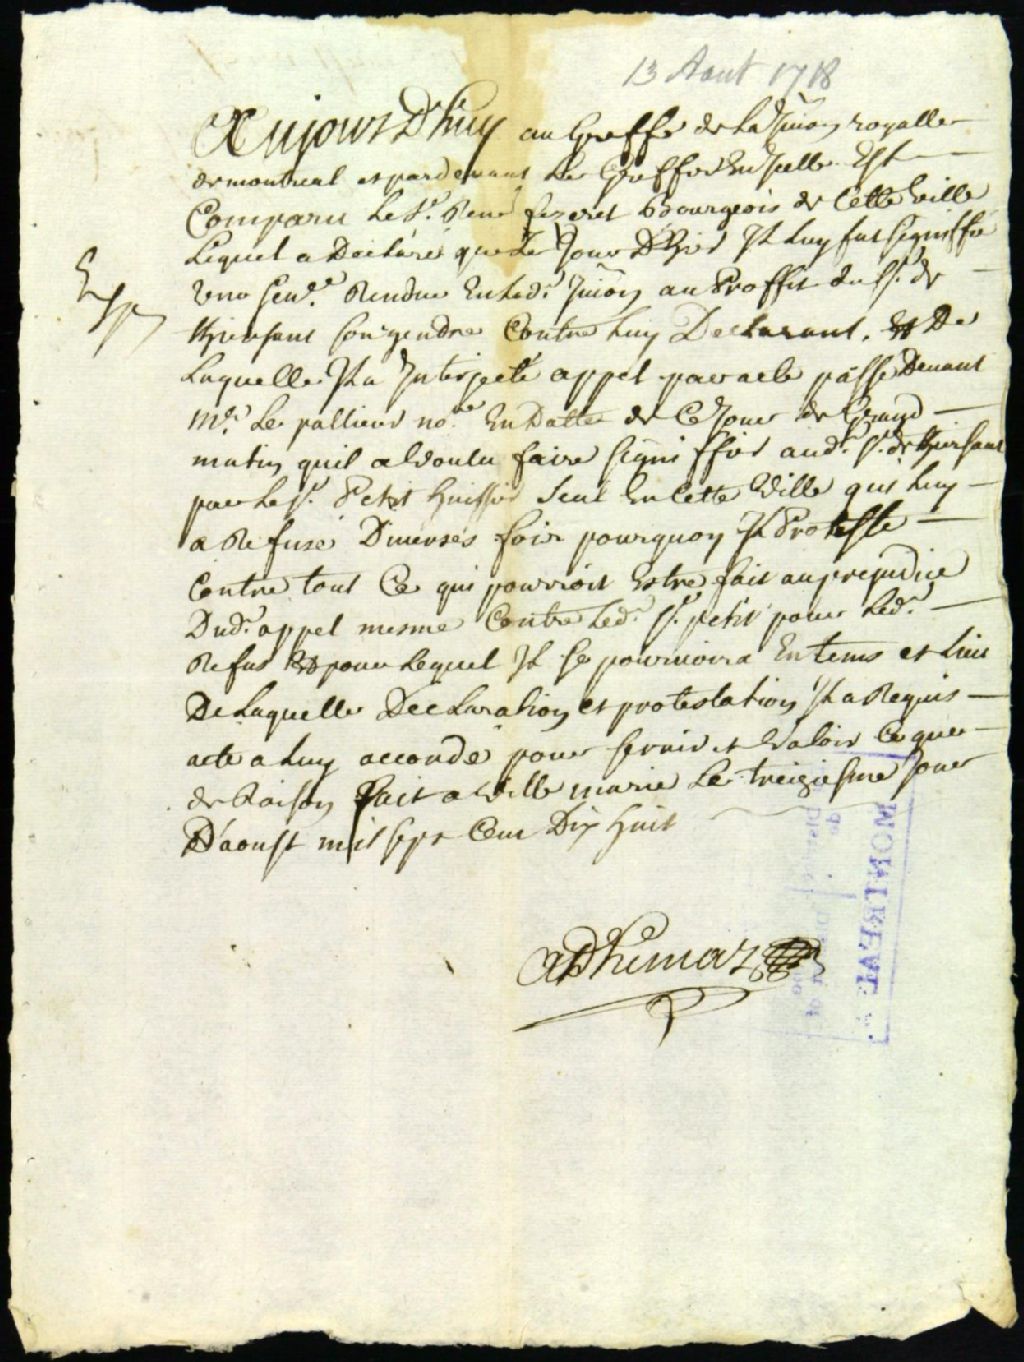 13 Aout 1718
Aujourd'huy au Greffe de la Jurion royalle
de montreal et pardevant le Greffier En Jcelle Est
Comparu le Sr. René fezeret Bourgeois de Cette Ville
Lequel a Declaré que le Jour D'hier Jl luy fut signiffié
Une Sence. Rendue En lade. Jurion au Proffit du Sr. de
Kierfant son gendre Contre luy Declarant. Et De
Laquelle Jl a Jnterjecté appel par acte passé Devant
Me. Le pallieur nore. En Datte de Ce Jour de Grand
matin quil a Voulu faire signiffier aud. Sr. de Kiersant
par le Sr. Petit huissier seul En Cette Ville qui luy
a Refusé Diverses fois pourquoy Jl Proteste
Contre tout Ce qui pourroit Estre fait au prejudice
Dud. appel mesme Contre led. Sr. petit pour led.
Refus pour Lequel Jl se pourvoira En tems et lieu
De Laquelle Declaration et protestation Jl a Requis
acte a Luy accordé pour servir et Valoir Ce que
de Raison fait a Ville marie le treiziesme Jour
D'aoust mil sept Cent Dix huit
adhemar
Exp
MONTREAL